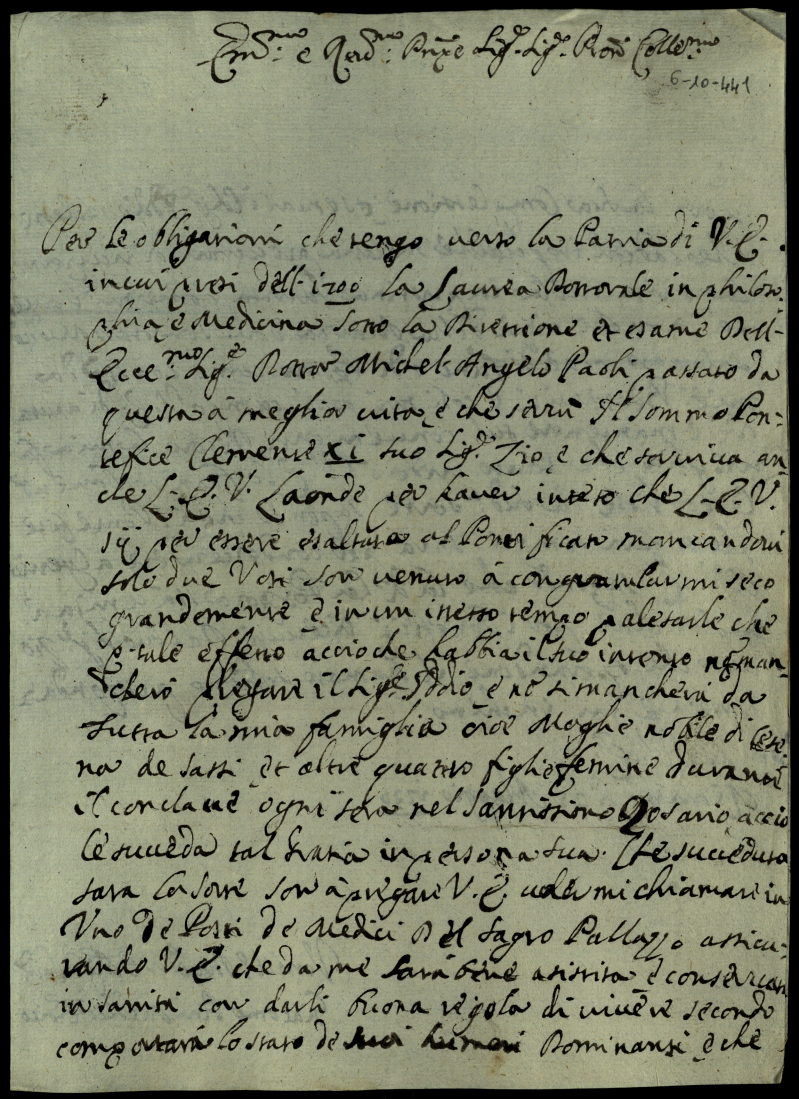 Em.mo e Rev.mo Prñpe Sig.r Sig.r Pron Colle.mo
6-10-441
Per le obligationi che tengo verso la Patria di V.E.
in cui presi dell 1700 la Laurea Dottorale in philoso
phia, e Medicina sotto la Direttione et esame Dell
Ecce.mo Sig.e Dottor Michel Angelo Paoli passato da
questa à meglio vita, e che servù Il Sommo Pon=
tefice Clemente xi suo Sig.r Zio, e che serviva an
che L.E.V. Laonde per haver inteso che L.E.V.
sij per essere esaltato al Pontificato mancandovi
solo due Voti son venuto à congratularmi seco
grandemente e in un istesso tempo palesarle che
p. tale effetto acciò che habbia il suo intento nõ man=
cherò pregare il Sig.r Iddio e nõ si mancherà da
tutta la mia famiglia cioè Moglie nobile di Cese
na de Sassi et altre quattro figlie femine durante
il conclave ogni sera nel Santissimo Rosario acciò
le succeda tal gratia in persona sua. Se succeduta
sarà la sorte son à pregare V.E. volermi chiamare in
Uno de Posti de Medici Del Sagro Pallazzo assicu=
rando V.E. che da me sarà bene asistita e conservata
in sanità con darli buona regola di vivere secondo
comportarà lo stato de suoi humori Dominanti e che